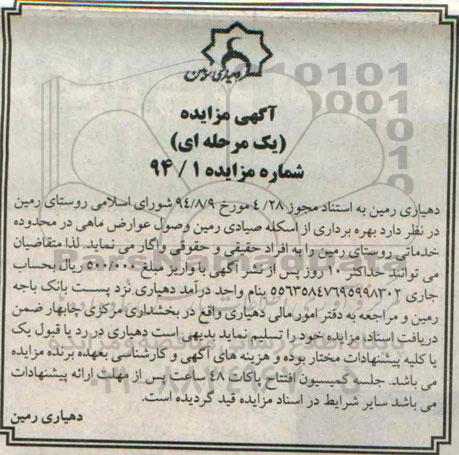 دهیاری رمین
آگهی مزایده
(یک مرحله ای)
شماره مزایده ۱ / ۹۴
دهیاری رمین به استناد مجوز ۴/۲۸ مورخ ۹۴/۸/۹ شورای اسلامی روستای رمین
در نظر دارد بهره برداری از اسکله صیادی رمین وصول عوارض ماهی در محدوده
خدماتی روستای رمین را به افراد حقیقی و حقوقی واگذار می نماید. لذا متقاضیان
می توانند حداکثر ۱۰ روز پس از نشر آگهی با واریز مبلغ ۵۰۰/۰۰۰ ریال بحساب
جاری ۵۵۶۳۵۸۴۷۶۹۵۹۹۸۳۰۲ بنام واحد درآمد دهیاری نزد پست بانک باجه
رمین و مراجعه به دفتر امور مالی دهیاری واقع در بخشداری مرکزی چابهار ضمن
دریافت اسناد، مزایده خود را تسلیم نماید بدیهی است دهیاری در رد یا قبول یک
یا کلیه پیشنهادات مختار بوده و هزینه های آگهی و کارشناسی بعهده برنده مزایده
می باشد. جلسه کمیسیون افتتاح پاکات ۴۸ ساعت پس از مهلت ارائه پیشنهادات
می باشد سایر شرایط در اسناد مزایده قید گردیده است.
دهیاری رمین